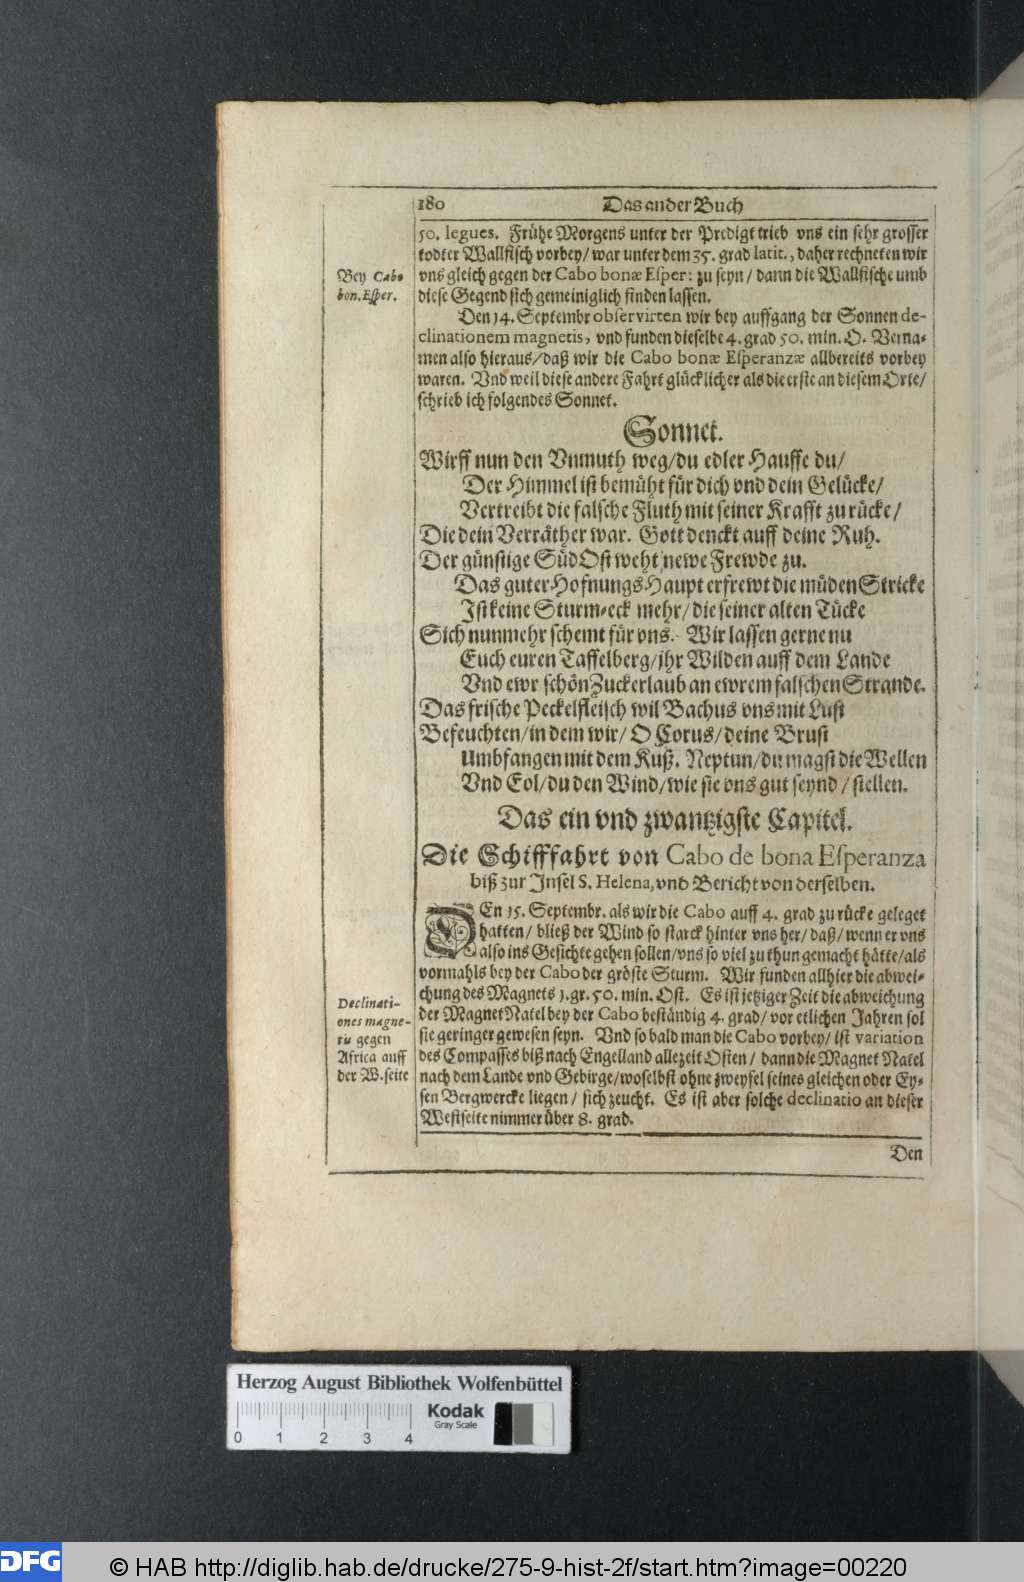 180 Das ander Buch
50. legues. Frühe Morgens unter der Predigt trieb vns ein sehr grosser
todter Wallfisch vorbey/ war unter dem 35. grad latit., daher rechneten wir
vns gleich gegen der Cabo bonæ Esper: zu seyn/ dann die Wallfische umb
diese Gegend sich gemeiniglich finden lassen.
Bey Cabo
bon. Esper.
Den 14. Septembr observirten wir bey auffgang der Sonnen de-
clinationem magnetis, vnd funden dieselbe 4. grad 50. min. O. Verna-
men also hieraus/ daß wir die Cabo bonæ Esperanzæ allbereits vorbey
waren. Vnd weil diese andere Fahrt glücklicher als die erste an diesem Orte/
schrieb ich folgendes Sonnet.
Sonnet.
Wirff nun den Vnmuth weg/ du edler Hauffe du/
Der Himmel ist bemüht für dich vnd dein Gelücke/
Vertreibt die falsche Fluth mit seiner Krafft zu rücke/
Die dein Verräther war. Gott denckt auff deine Ruh.
Der günstige SüdOst weht newe Frewde zu.
Das guter Hofnungs Haupt erfrewt die müden Stricke
Ist keine Sturm-eck mehr/ die seiner alten Tücke
Sich nunmehr schemt für vns. Wir lassen gerne nu
Euch euren Taffelberg/ jhr Wilden auff dem Lande
Vnd ewr schön Zuckerlaub an ewrem falschen Strande.
Das frische Peckelfleisch wil Bachus vns mit Lust
Befeuchten/ in dem wir/ O Corus/ deine Brust
Umbfangen mit dem Kuß. Neptun/ du magst die Wellen
Vnd Eol/ du den Wind/ wie sie vns gut seynd/ stellen.
Das ein vnd zwantzigste Capitel.
Die Schifffahrt von Cabo de bona Esperanza
biß zur Insel S. Helena, vnd Bericht von derselben.
DEn 15. Septembr. als wir die Cabo auff 4. grad zu rücke geleget
hatten/ bließ der Wind so starck hinter vns her/ daß/ wenn er vns
also ins Gesichte gehen sollen/ vns so viel zu thun gemacht hätte/ als
vormahls bey der Cabo der gröste Sturm. Wir funden allhier die abwei-
chung des Magnets 1. gr. 50. min. Ost. Es ist jetziger Zeit die abweichung
der Magnet Natel bey der Cabo beständig 4. grad/ vor etlichen Jahren sol
sie geringer gewesen seyn. Vnd so bald man die Cabo vorbey/ ist variation
des Compasses biß nach Engelland allezeit Osten/ dann die Magnet Natel
nach dem Lande vnd Gebirge/ woselbst ohne zweyfel seines gleichen oder Ey-
sen Bergwercke liegen/ sich zeucht. Es ist aber solche declinatio an dieser
Westseite nimmer über 8. grad.
Declinati-
ones magne-
tis gegen
Africa auff
der W. seite
Den
Herzog August Bibliothek Wolfenbüttel
0 1 2 3 4
Kodak
Gray Scale
DFG
© HAB http://diglib.hab.de/drucke/275-9-hist-2f/start.htm?image=00220